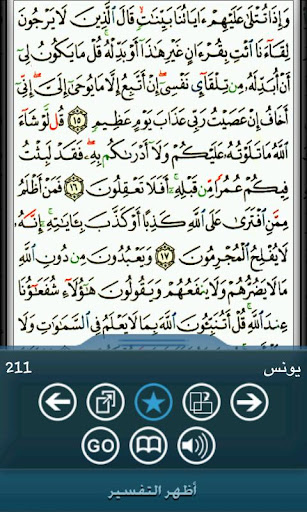 وَإِذَا تُتْلَىٰ عَلَيْهِمْ ءَايَاتُنَا بَيِّنَٰتٍ قَالَ ٱلَّذِينَ لَا يَرْجُونَ
لِقَآءَنَا ٱئْتِ بِقُرْءَانٍ غَيْرِ هَٰذَآ أَوْ بَدِّلْهُ قُلْ مَا يَكُونُ لِىٓ
أَنْ أُبَدِّلَهُۥ مِن تِلْقَآئِ نَفْسِىٓ إِنْ أَتَّبِعُ إِلَّا مَا يُوحَىٰٓ إِلَىَّ إِنِّىٓ
أَخَافُ إِنْ عَصَيْتُ رَبِّى عَذَابَ يَوْمٍ عَظِيمٍ ١٥ قُل لَّوْ شَآءَ
ٱللَّهُ مَا تَلَوْتُهُۥ عَلَيْكُمْ وَلَآ أَدْرَىٰكُم بِهِۦ فَقَدْ لَبِثْتُ
فِيكُمْ عُمُرًا مِّن قَبْلِهِۦٓ أَفَلَا تَعْقِلُونَ ١٦ فَمَنْ أَظْلَمُ
مِمَّنِ ٱفْتَرَىٰ عَلَى ٱللَّهِ كَذِبًا أَوْ كَذَّبَ بِـَٔايَٰتِهِۦٓ إِنَّهُۥ
لَا يُفْلِحُ ٱلْمُجْرِمُونَ ١٧ وَيَعْبُدُونَ مِن دُونِ ٱللَّهِ
مَا لَا يَضُرُّهُمْ وَلَا يَنفَعُهُمْ وَيَقُولُونَ هَٰٓؤُلَآءِ شُفَعَٰٓؤُنَا
عِندَ ٱللَّهِ قُلْ أَتُنَبِّـُٔونَ ٱللَّهَ بِمَا لَا يَعْلَمُ فِى ٱلسَّمَٰوَٰتِ وَلَا
يونس 211
GO
أظهر التفسير